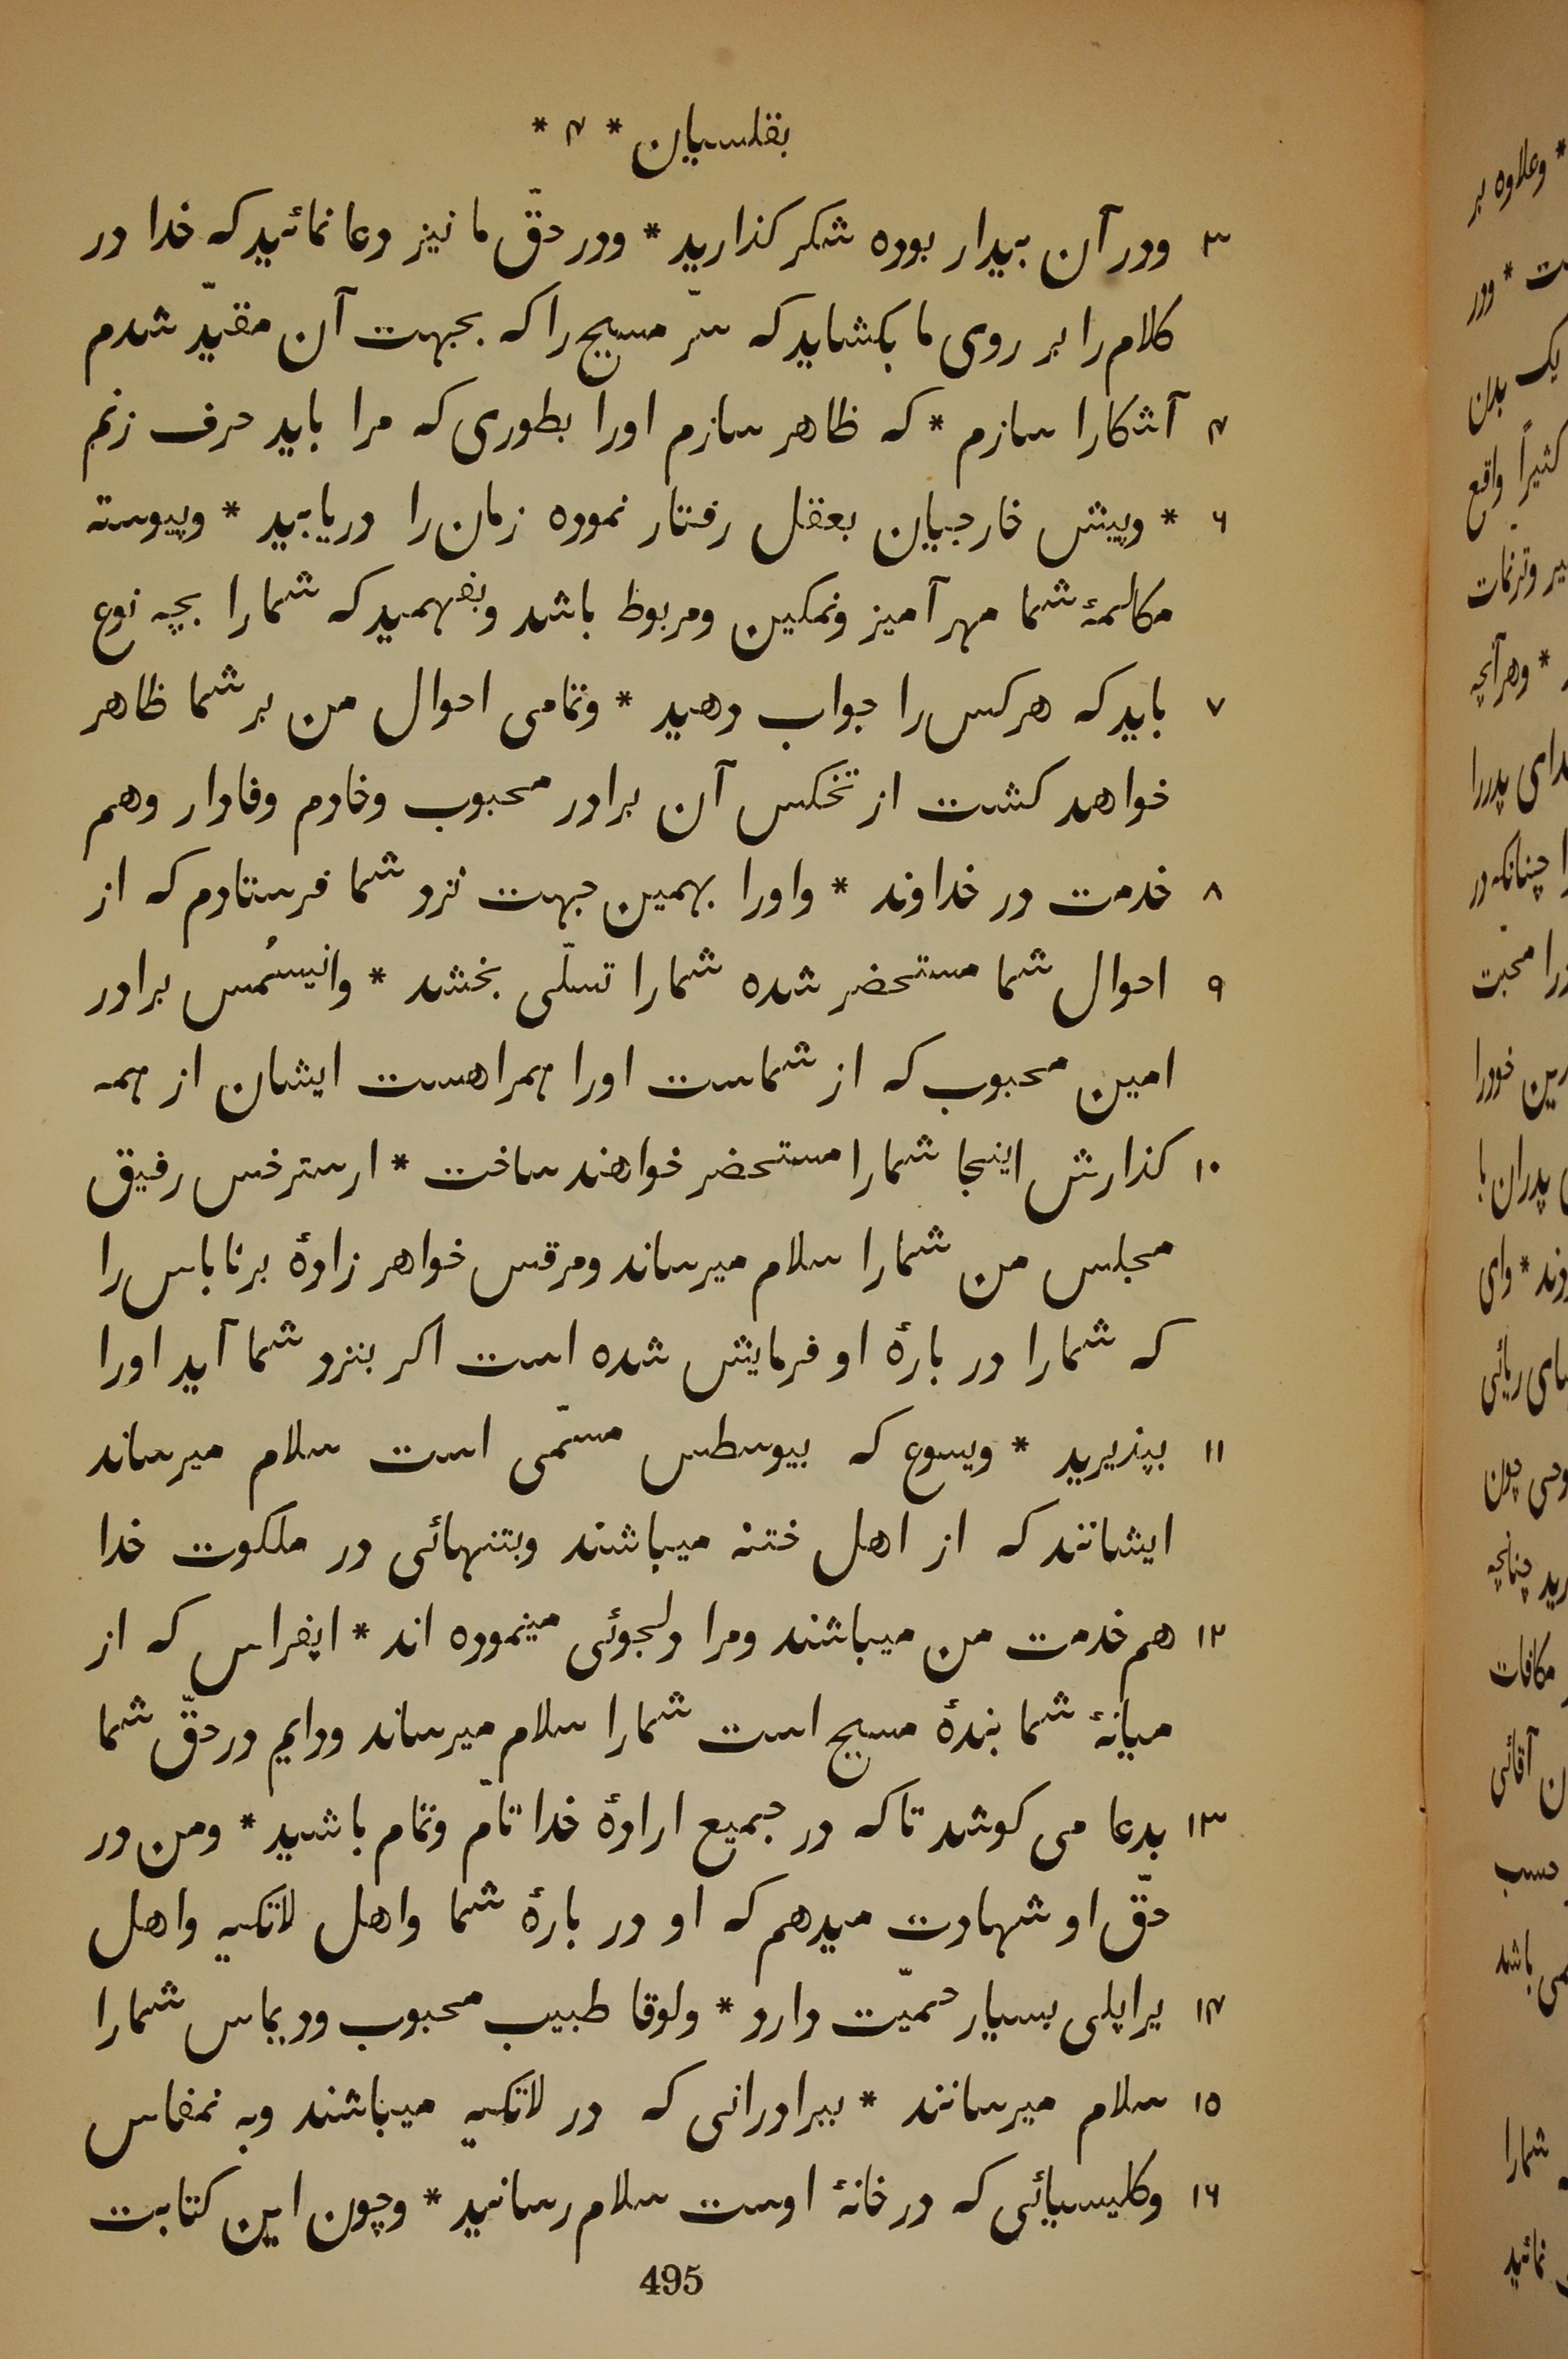 بقلسیان * ۴ *
۳ ودر آن بیدار بوده شکر کذارید * ودر حقّ ما نیز دعا نمائید که خدا در
کلام را بر روی ما بکشاید که سرّ مسیح را که بجهت آن مقیّد شدم
۴ آشکارا سازم * که ظاهر سازم اورا بطوری که مرا باید حرف زنم
۶ * وپیش خارجیان بعقل رفتار نموده زمان را دریابید * وپیوسته
مکالمهٔ شما مهرآمیز ونمکین ومربوط باشد وبفهمید که شمارا بچه نوع
۷ باید که هرکس را جواب دهید * وتمامی احوال من بر شما ظاهر
خواهد کشت از تخکس آن برادر محبوب وخادم وفادار وهم
۸ خدمت در خداوند * واورا بهمین جهت نزد شما فرستادم که از
۹ احوال شما مستحضر شده شمارا تسلّی بخشد * وانیسُمس برادر
امین محبوب که از شماست اورا همراهست ایشان از همه
۱۰ کذارش اینجا شمارا مستحضر خواهند ساخت * ارسترخس رفیق
مجلس من شمارا سلام میرساند ومرقس خواهر زادهٔ برناباس را
که شمارا در بارهٔ او فرمایش شده است اکر بنزد شما آید اورا
۱۱ بپذیرید * ویسوع که بیوسطس مسمّی است سلام میرساند
ایشانند که از اهل ختنه میباشند وبتنهائی در ملکوت خدا
۱۲ هم خدمت من میباشند ومرا دلجوئی مینموده اند * اپفراس که از
میانهٔ شما بندهٔ مسیح است شمارا سلام میرساند ودایم در حقّ شما
۱۳ بدعا می کوشد تا که در جمیع ارادهٔ خدا تامّ وتمام باشید * ومن در
حقّ او شهادت میدهم که او در بارهٔ شما واهل لاتکیه واهل
۱۴ یراپلی بسیار حمیّت دارد * ولوقا طبیب محبوب ودیماس شمارا
۱۵ سلام میرسانند * ببرادرانی که در لاتکیه میباشند وبه نمفاس
۱۶ وکلیسیائی که در خانهٔ اوست سلام رسانید * وچون این کتابت
495
* وعلاوه بر
یک بدن
کثیراً واقع
* وهرآنچه
چنانکه در
خودرا
پدران با
* وای
ریائی
چون
چنانچه
مکافات
آقائی
حسب
باشد
شمارا
نمائید